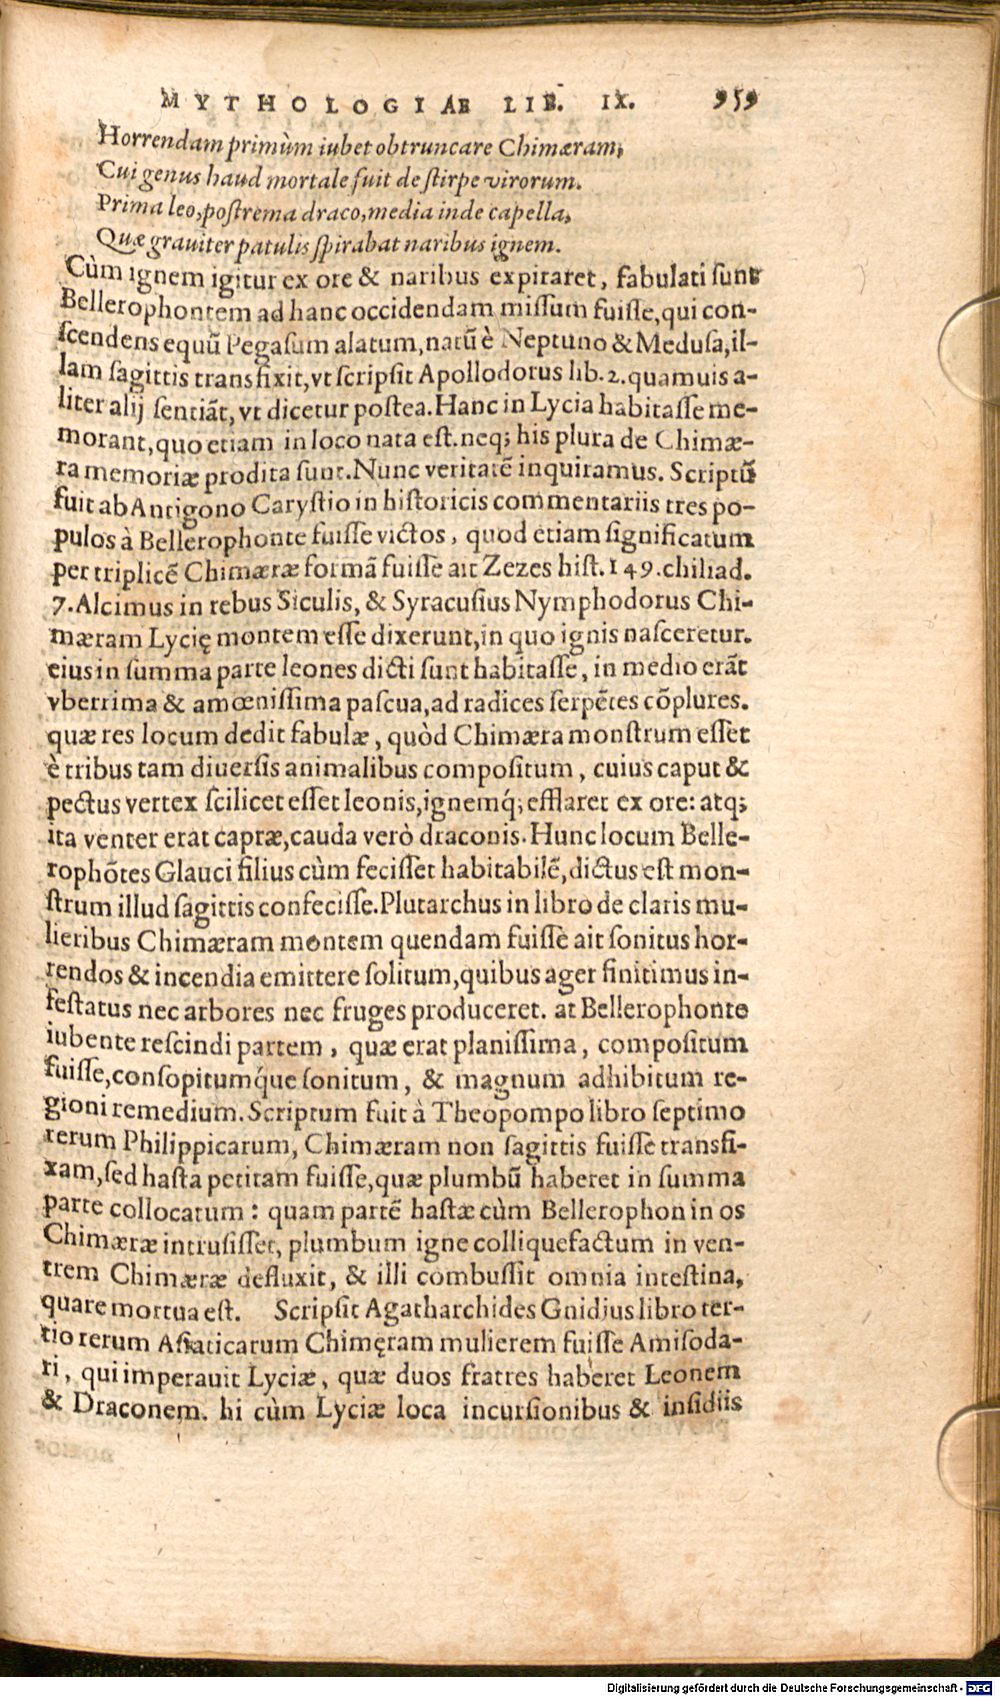 MYTHOLOGIAE LIB. IX. 959
Horrendam primùm iubet obtruncare Chimæram,
Cui genus haud mortale fuit de stirpe virorum.
Prima leo, postrema draco, media inde capella,
Quæ grauiter patulis spirabat naribus ignem.
Cùm ignem igitur ex ore & naribus expiraret, fabulati sunt
Bellerophontem ad hanc occidendam missum fuisse, qui con-
scendens equũ Pegasum alatum, natũ è Neptuno & Medusa, il-
lam sagittis transfixit, vt scripsit Apollodorus lib. 2. quamuis a-
liter alij sentiãt, vt dicetur postea. Hanc in Lycia habitasse me-
morant, quo etiam in loco nata est. neq; his plura de Chimæ-
ra memoriæ prodita sunt. Nunc veritatẽ inquiramus. Scriptũ
fuit ab Antigono Carystio in historicis commentariis tres po-
pulos à Bellerophonte fuisse victos, quod etiam significatum
per triplicẽ Chimæræ formã fuisse ait Zezes hist. 149. chiliad.
7. Alcimus in rebus Siculis, & Syracusius Nymphodorus Chi-
mæram Lycię montem esse dixerunt, in quo ignis nasceretur.
eius in summa parte leones dicti sunt habitasse, in medio erãt
vberrima & amœnissima pascua, ad radices serpẽtes cõplures.
quæ res locum dedit fabulæ, quòd Chimæra monstrum esset
è tribus tam diuersis animalibus compositum, cuius caput &
pectus vertex scilicet esset leonis, ignemq́; efflaret ex ore: atq;
ita venter erat capræ, cauda verò draconis. Hunc locum Belle-
rophõtes Glauci filius cùm fecisset habitabilẽ, dictus est mon-
strum illud sagittis confecisse. Plutarchus in libro de claris mu-
lieribus Chimæram montem quendam fuisse ait sonitus hor-
rendos & incendia emittere solitum, quibus ager finitimus in-
festatus nec arbores nec fruges produceret. at Bellerophonte
iubente rescindi partem, quæ erat planissima, compositum
fuisse, consopitumq́ue sonitum, & magnum adhibitum re-
gioni remedium. Scriptum fuit à Theopompo libro septimo
rerum Philippicarum, Chimæram non sagittis fuisse transfi-
xam, sed hasta petitam fuisse, quæ plumbũ haberet in summa
parte collocatum: quam partẽ hastæ cùm Bellerophon in os
Chimæræ intrusisset, plumbum igne colliquefactum in ven-
trem Chimæræ defluxit, & illi combussit omnia intestina,
quare mortua est. Scripsit Agatharchides Gnidius libro ter-
tio rerum Asiaticarum Chimęram mulierem fuisse Amisoda-
ri, qui imperauit Lyciæ, quæ duos fratres haberet Leonem
& Draconem. hi cùm Lyciæ loca incursionibus & insidiis
Digitalisierung gefördert durch die Deutsche Forschungsgemeinschaft - DFG